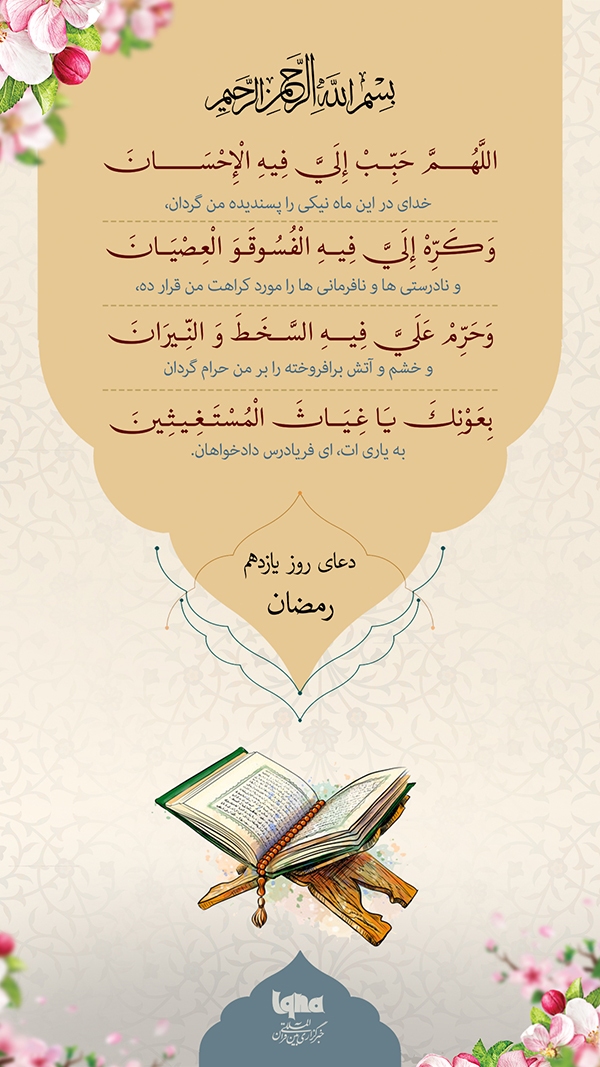 بِسْمِ اللَّهِ الرَّحْمَنِ الرَّحِيمِ
اللَّهُمَّ حَبِّبْ إِلَيَّ فِيهِ الْإِحْسَانَ
خدای در این ماه نیکی را پسندیده من گردان،
وَكَرِّهْ إِلَيَّ فِيهِ الْفُسُوقَوَ الْعِصْيَانَ
و نادرستی ها و نافرمانی ها را مورد کراهت من قرار ده،
وَحَرِّمْ عَلَيَّ فِيهِ السَّخَطَ وَ النِّيرَانَ
و خشم و آتش برافروخته را بر من حرام گردان
بِعَوْنِكَ يَا غِيَاثَ الْمُسْتَغِيثِينَ
به یاری ات، ای فریادرس دادخواهان.
دعای روز یازدهم
رمضان
iqna
خبرگزاری بین المللی قرآن